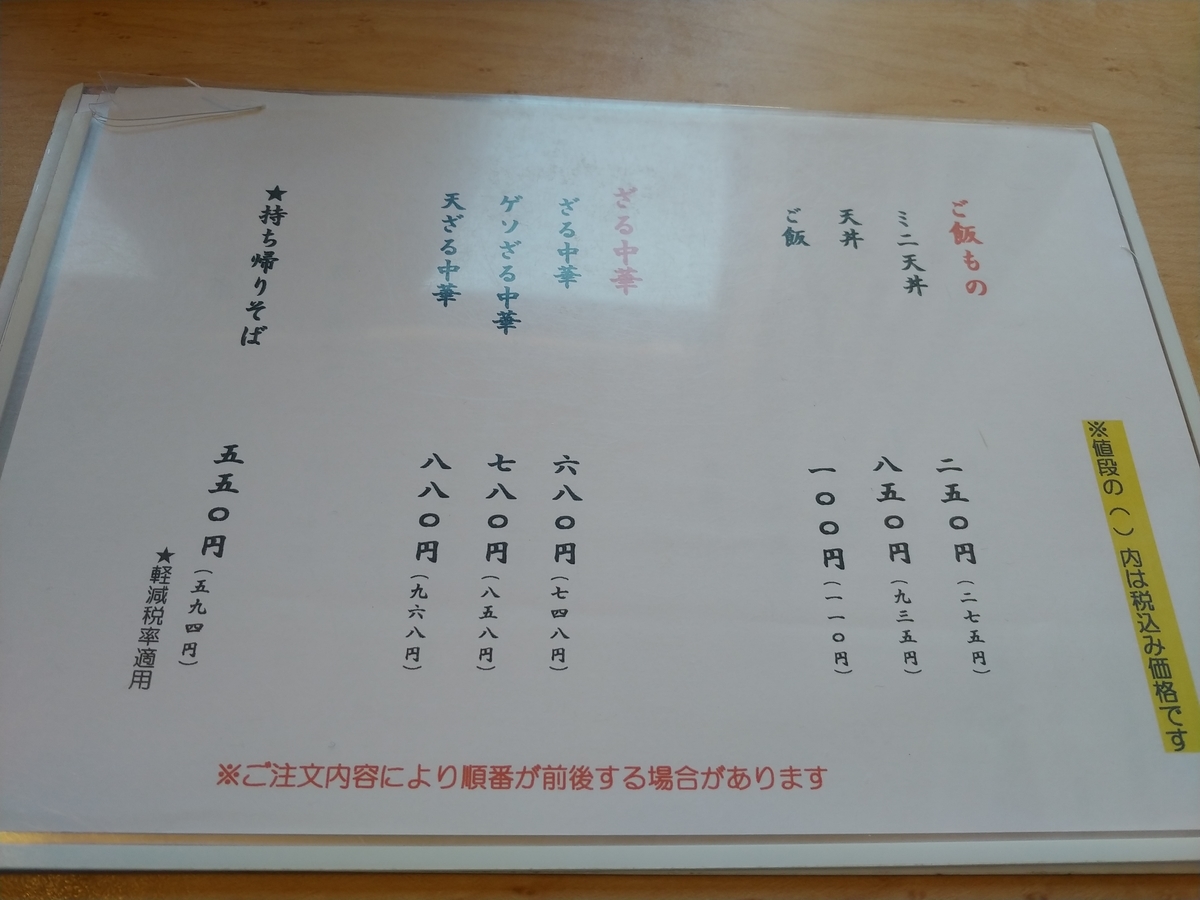 ※値段の（ ）内は税込み価格です
ご飯もの
ミニ天丼 二五〇円（二七五円）
天丼 八五〇円（九三五円）
ご飯 一〇〇円（一一〇円）
ざる中華
ざる中華 六八〇円（七四八円）
ゲソざる中華 七八〇円（八五八円）
天ざる中華 八八〇円（九六八円）
★持ち帰りそば 五五〇円（五九四円）
★軽減税率適用
※ご注文内容により順番が前後する場合があります